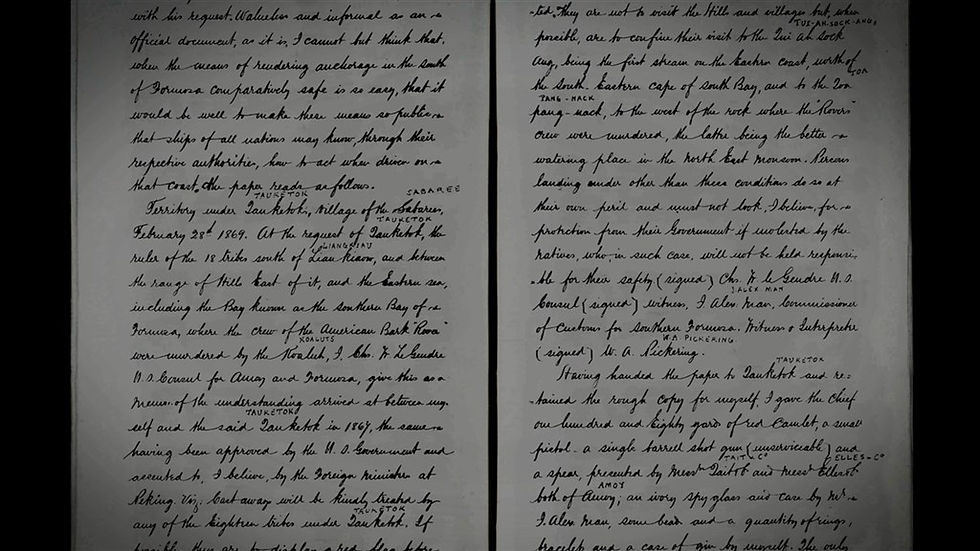 with his request. Valueless and informal as an
official document, as it is, I cannot but think that,
when the means of rendering anchorage in the south
of Formosa comparatively safe is so easy, that it
would be well to make these means so public
that ships of all nations may know, through their
respective authorities, how to act when driven on
that coast, the paper reads as follows.
TAUKETOK SABAREE
Territory under Tauketok, Village of the Sabarees,
TAUKETOK
February 28th 1869. At the request of Tauketok, the
LIANGKIAU
ruler of the 18 tribes south of Liau kiaow, and between
the range of Hills East of it, and the Eastern sea,
including the Bay known as the southern Bay of
Formosa, where the crew of the American Bark "Rova"
KOALUTS
were murdered by the Koaluh, I, Chs. W. Le Gendre
U.S. Consul for Amoy and Formosa, give this as a
Memo. of the understanding arrived at between my-
TAUKETOK
self and the said Tauketok in 1867, the same
having been approved by the U.S. Government and
assented to, I believe, by the Foreign Ministers at
Peking. Viz: Cast away will be kindly treated by
TAUKETOK
any of the Eighteen tribes under Tauketok. If
possible they are to display a red flag before
ted. They are not to visit the Hills and villages but, when
TUI-AH-SOCK-ANG
possible, are to confine their visit to the Tui ah sock
Ang, being the first stream on the Eastern coast, north of
TOA
the South Eastern cape of south Bay, and to the Toa
PANG-NACK
pang-nack, to the west of the rock where the "Rovers"
crew were murdered, the latter being the better
watering place in the North East Monsoon. Persons
landing under other than these conditions do so at
their own peril and must not look, I believe, for
protection from their Government if molested by the
natives, who, in such case, will not be held responsi-
ble for their safety (signed) Chs. W. le Gendre U.S.
J. ALEX MAN
Consul (signed) witness, J. Alex. Man, Commissioner
of Customs for Southern Formosa. Witness & Interpreter
W.A. PICKERING
(signed) W. A. Pickering.
TAUKETOK
Having handed the paper to Tauketok and re-
tained the rough copy for myself, I gave the Chief
one hundred and Eighty yards of red Camlet, a small
pistol, a single barrell shot gun (unserviceable) and
TAIT & Co ELLES & Co
a spear, presented by Messrs Taitob and Messrs Ellesob
AMOY
both of Amoy; an ivory spy glass and case by Mr.
J. Alex Man, some beads and a quantity of rings,
bracelets and a case of gin by myself. The only